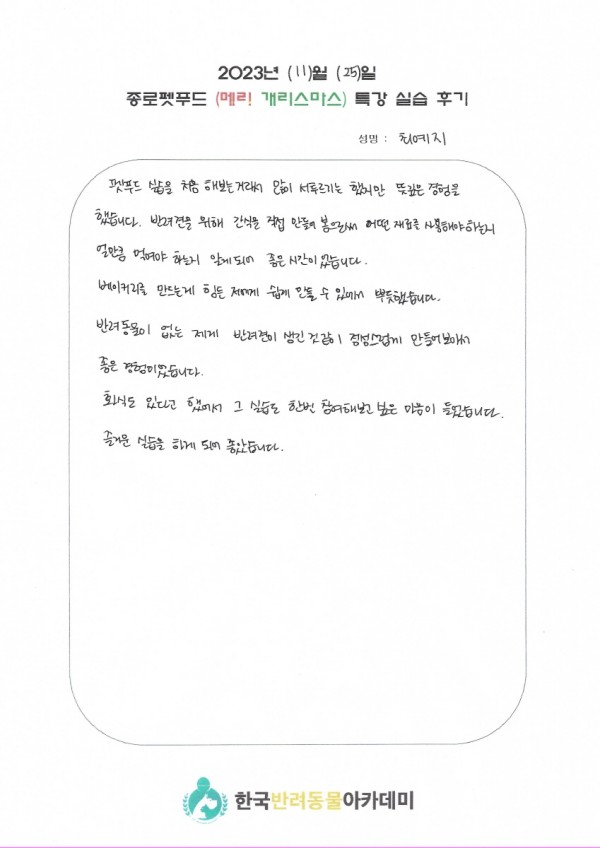 2023년 (11)월 (25)일
종로펫푸드 (메리! 개리스마스) 특강 실습 후기
성명 : 최예지
펫푸드 실습을 처음 해보는거라서 많이 서투르기는 했지만 뜻깊은 경험을
했습니다. 반려견을 위해 간식을 직접 만들어 봄으로써 어떤 재료를 사용해야하는지
얼만큼 먹여야 하는지 알게되어 좋은 시간이었습니다.
베이커리를 만드는게 힘든 저에게 쉽게 만들 수 있어서 뿌듯했습니다.
반려동물이 없는 제게 반려견이 생긴 것같이 정성스럽게 만들어보아서
좋은 경험이었습니다.
화식도 있다고 했어서 그 실습도 한번 참여해보고 싶은 마음이 들었습니다.
즐거운 실습을 하게 되어 좋았습니다.
한국반려동물아카데미